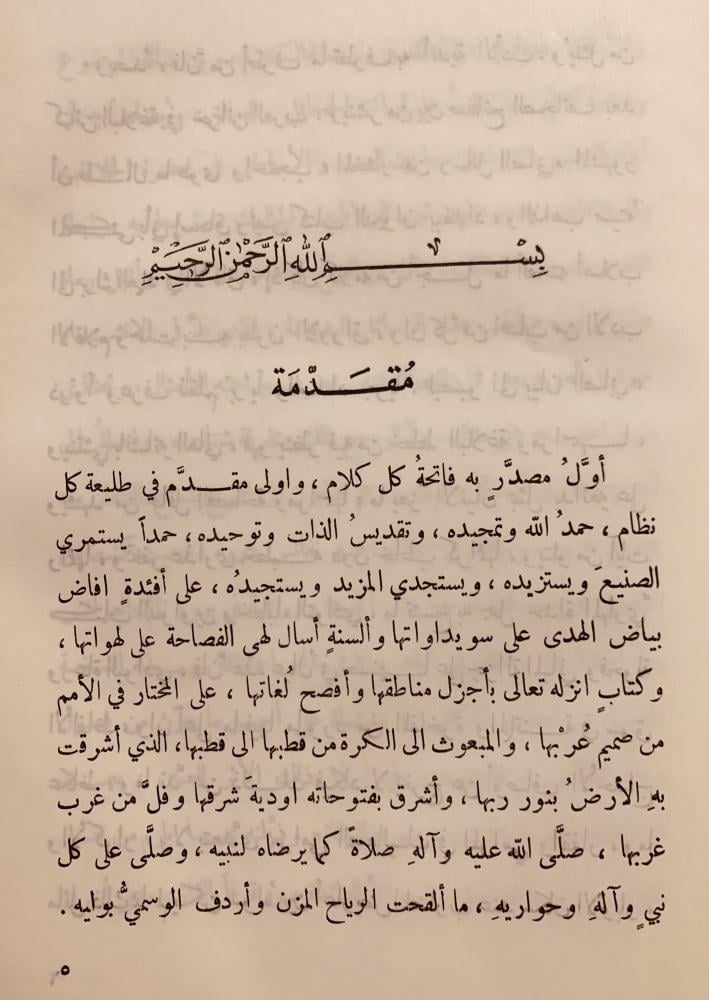 بِسْمِ ٱللهِ ٱلرَّحْمٰنِ ٱلرَّحِيمِ
مُقَدّمَة
أوَّلُ مصدَّرٍ به فاتحةُ كل كلام ، واولى مقدَّم في طليعة كل
نظام ، حمدُ الله وتمجيده ، وتقديسُ الذات وتوحيده ، حمداً يستمري
الصنيعَ ويستزيده ، ويستجدي المزيد ويستجيدُه ، على أفئدةٍ افاض
بياض الهدى على سويداواتها وألسنةٍ أسال لهى الفصاحة على لهواتها ،
وكتابٍ انزله تعالى بأجزل مناطقها وأفصح لُغاتها ، على المختار في الأمم
من صميم عُرْبها ، والمبعوث الى الكرة من قطبها الى قطبها ، الذي أشرقت
بهِ الأرضُ بنور ربها ، وأشرق بفتوحاته اوديةَ شرقها وفلَّ من غرب
غربها ، صلَّى الله عليه وآلهِ صلاةً كما يرضاه لنبيه ، وصلَّى على كل
نبيٍ وآلهِ وحواريهِ ، ما ألقحت الرياح المزن وأردف الوسميُّ بوليه .
٥